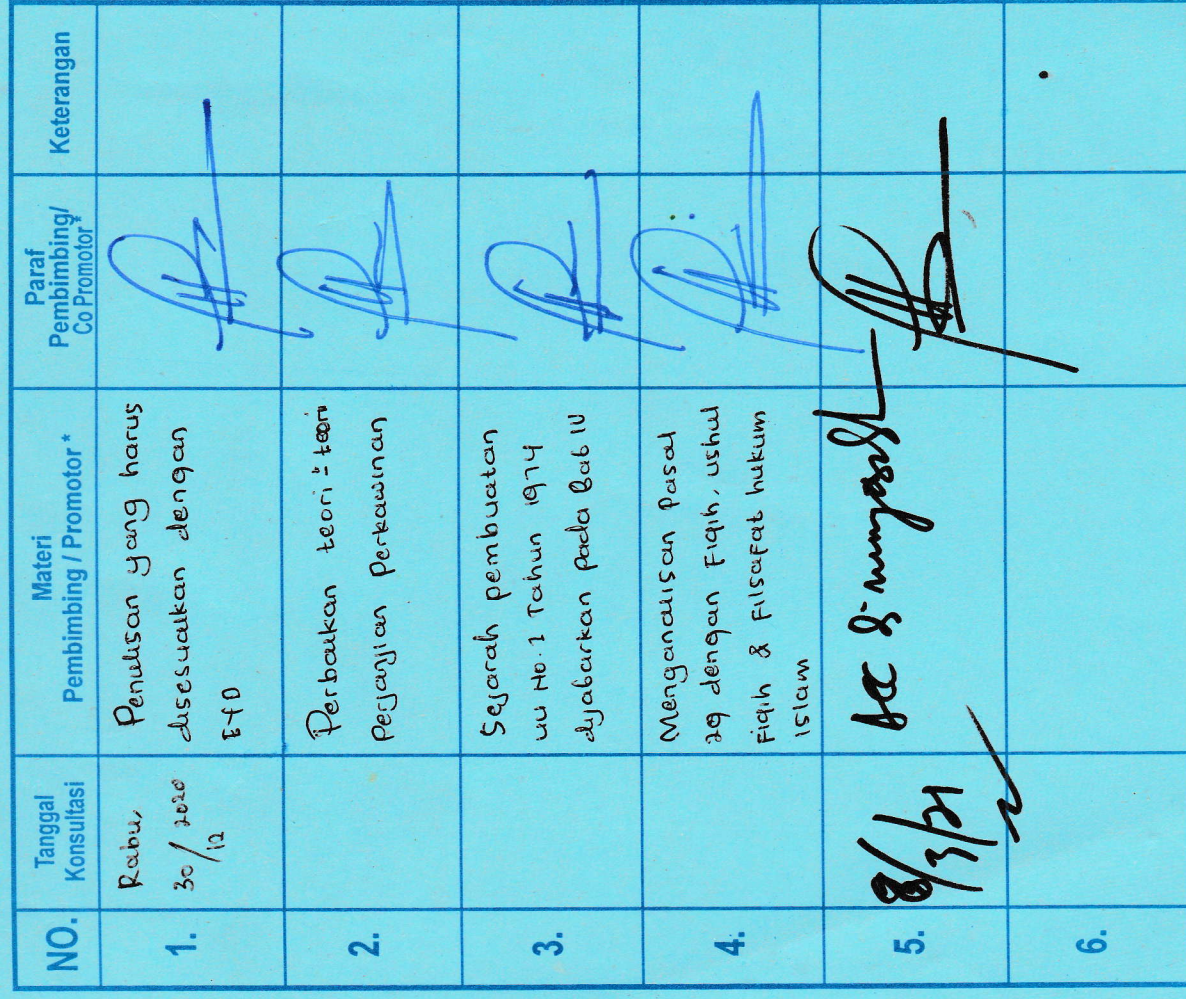 NO.
Tanggal
Konsultasi
Materi
Pembimbing / Promotor *
Paraf
Pembimbing/
Co Promotor*
Keterangan
1.
Rabu,
30/12 2020
Penulisan yang harus
disesuaikan dengan
EYD
2.
Perbaikan teori²teori
Perjanjian Perkawinan
3.
Sejarah pembuatan
UU No. 1 Tahun 1974
dijabarkan pada Bab IV
4.
Menganalisan Pasal
29 dengan Fiqih, ushul
Fiqih & Filsafat hukum
Islam
5.
8/3/21
Acc
6.